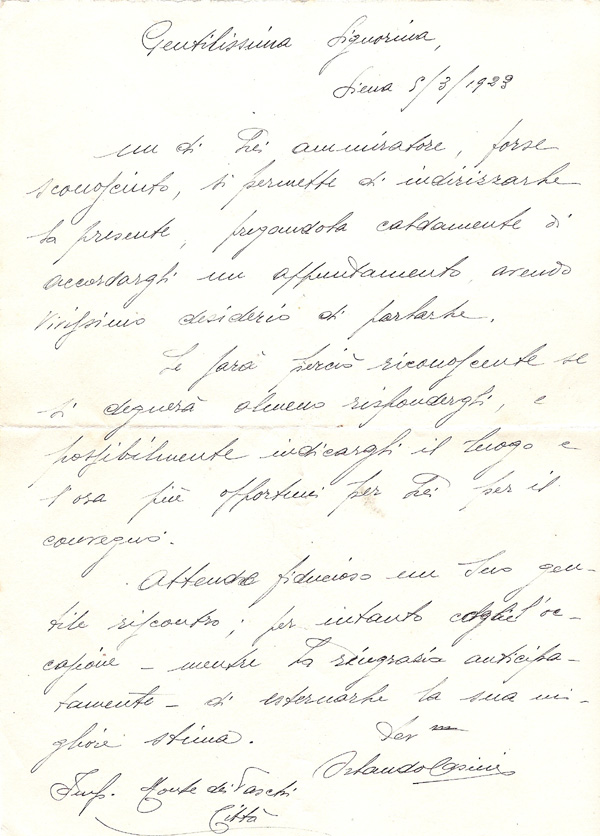 Gentilissima Signorina,
Siena 5/3/1923
un di Lei ammiratore, forse
sconosciuto, si permette di indirizzarle
la presente, pregandola caldamente di
accordargli un appuntamento, avendo
vivissimo desiderio di parlarle.
Le sarà perciò riconoscente se
si degnerà almeno rispondergli, e
possibilmente indicargli il luogo e
l'ora più opportuni per Lei per il
convegno.
Attende fiducioso un Suo gen-
tile riscontro; per intanto coglie l'oc-
casione - mentre La ringrazia anticipa-
tamente - di esternarle la sua mi-
gliore stima.
Dev mo
Orlando
Imp. Monte dei Paschi
Città